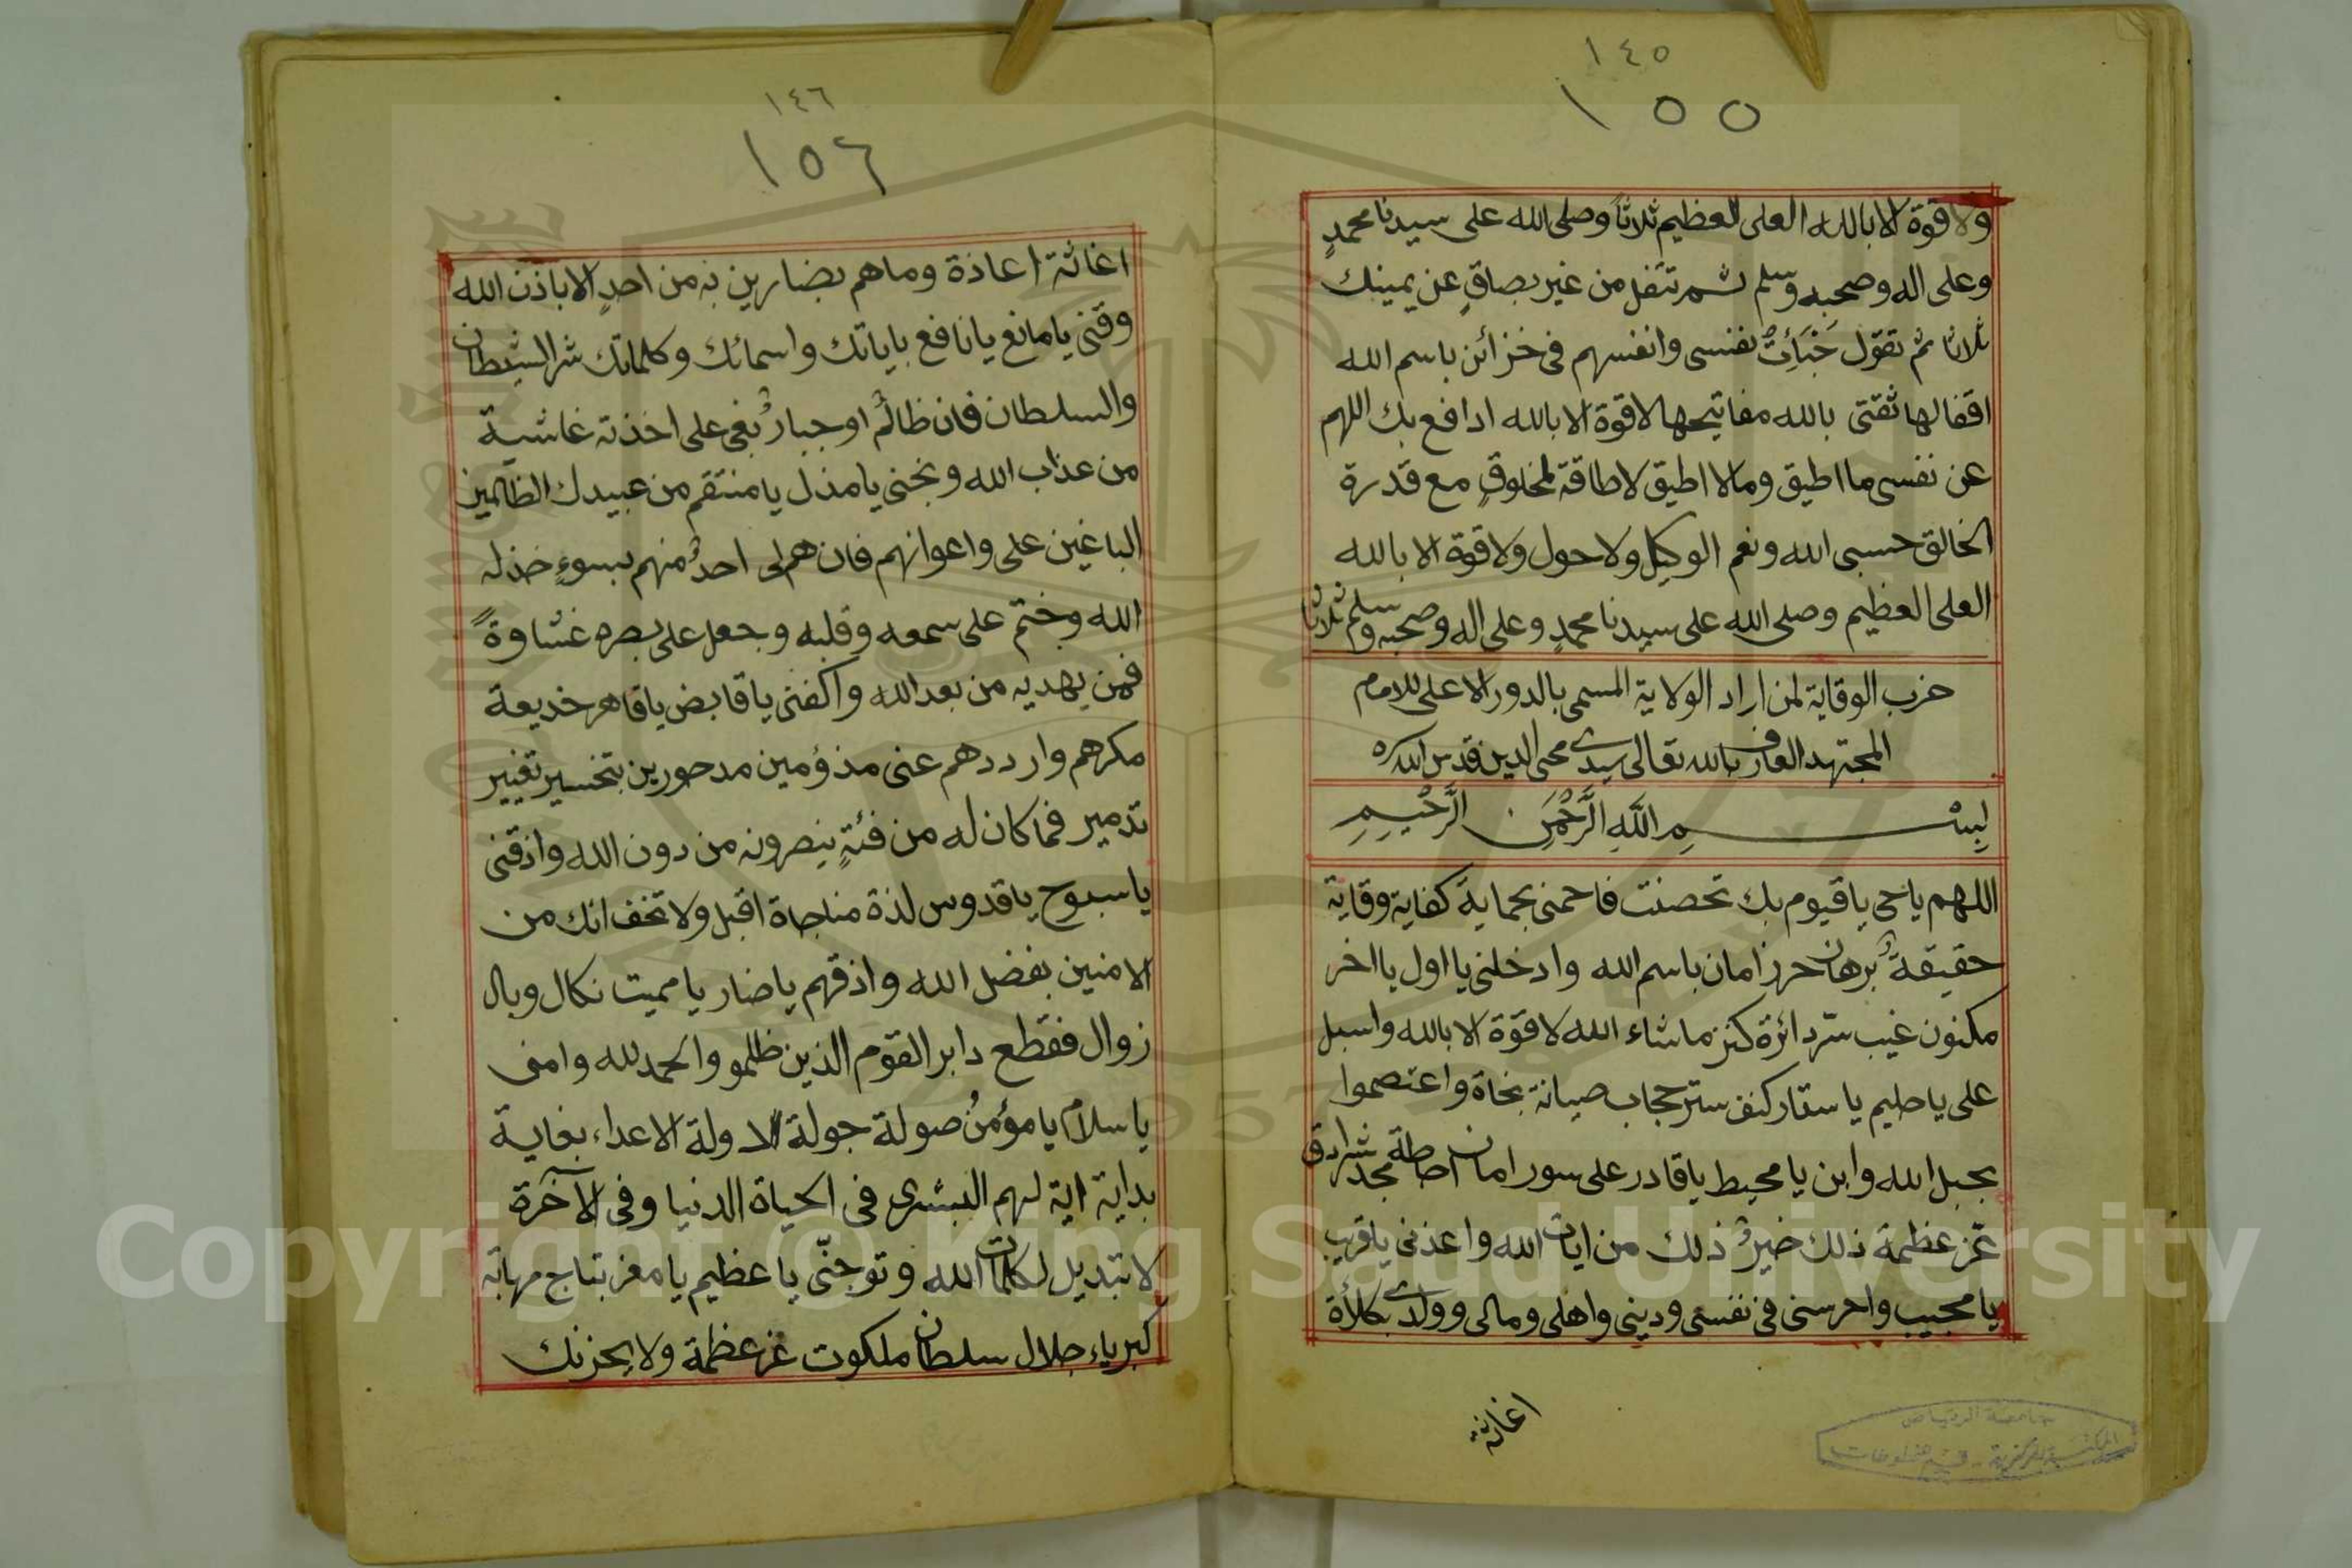 ١٤٥
١٥٥
ولا قوة الا بالله العلى العظيم ثلاثا وصلى الله على سيدنا محمدٍ
وعلى اله وصحبه وسلم ثم تتفل من غير بصاقٍ عن يمينك
ثلاثا ثم تقول خَبَأتُ نفسى وانفسهم فى خزائن باسم الله
اقفالها ثقتى بالله مفاتيحها لا قوة الا بالله ادافع بك اللهم
عن نفسى ما اطيق وما لا اطيق لا طاقة لمخلوقٍ مع قدرة
الخالق حسبى الله ونعم الوكيل ولا حول ولا قوة الا بالله
العلى العظيم وصلى الله على سيدنا محمدٍ وعلى اله وصحبه وسلم ثلاثا
حزب الوقاية لمن اراد الولاية المسمى بالدور الاعلى للامام
المجتهد العارف بالله تعالى سيدى محى الدين قدس الله سره
بِسْمِ اللَّهِ الرَّحْمَنِ الرَّحْيِمِ
اللهم ياحى ياقيوم بك تحصنت فاحمنى بحماية كفاية وقاية
حقيقة برهان حرز امان باسم الله وادخلنى يا اول يا اخر
مكنون غيب سرّ دائرة كنز ماشاء الله لا قوة الا بالله واسبل
على ياحليم ياستار كنف ستر حجاب صيانة نجاة واعتصموا
بحبل الله وابن يامحيط ياقادر على سور امان احاطة مجد سرادق
عز عظمة ذلك خيرٌ ذلك من ايات الله واعذنى ياقريب
يا مجيب واحرسنى فى نفسى ودينى واهلى ومالى وولدى بكلأة
اغاثة
جامعة الرياض
المكتبة المركزية - قسم المخطوطات
١٤٦
١٥٦
اغاثة اعاذة وماهم بضارين به من احدٍ الا باذن الله
وقنى يامانع يانافع باياتك واسمائك وكلماتك شر الشيطان
والسلطان فان ظالمٌ او جبارٌ بغى على اخذته غاشية
من عذاب الله ونجنى يامذل يامنتقم من عبيدك الظالمين
الباغين على واعوانهم فان هم لى احدٌ منهم بسوءٍ خذله
الله وختم على سمعه وقلبه وجعل على بصره غشاوةً
فمن يهديه من بعد الله واكفنى ياقابض ياقاهر خديعة
مكرهم وارددهم عنى مذؤمين مدحورين بتخسير تغيير
تدمير فما كان له من فئةٍ ينصرونه من دون الله واذقنى
ياسبوح ياقدوس لذة مناجاة اقبل ولا تخف انك من
الامنين بفضل الله واذقهم ياضار يامميت نكال وبال
زوال فقطع دابر القوم الذين ظلموا والحمد لله وامنى
ياسلام يامؤمن صولة جولة دولة الاعداء بغاية
بداية اية لهم البشرى فى الحياة الدنيا وفى الآخرة
لا تبديل لكلمات الله وتوجنّى ياعظيم يامعز بتاج مهابة
كبرياء جلال سلطان ملكوت عز عظمة ولا يحزنك
Copyright © King Saud University
1957